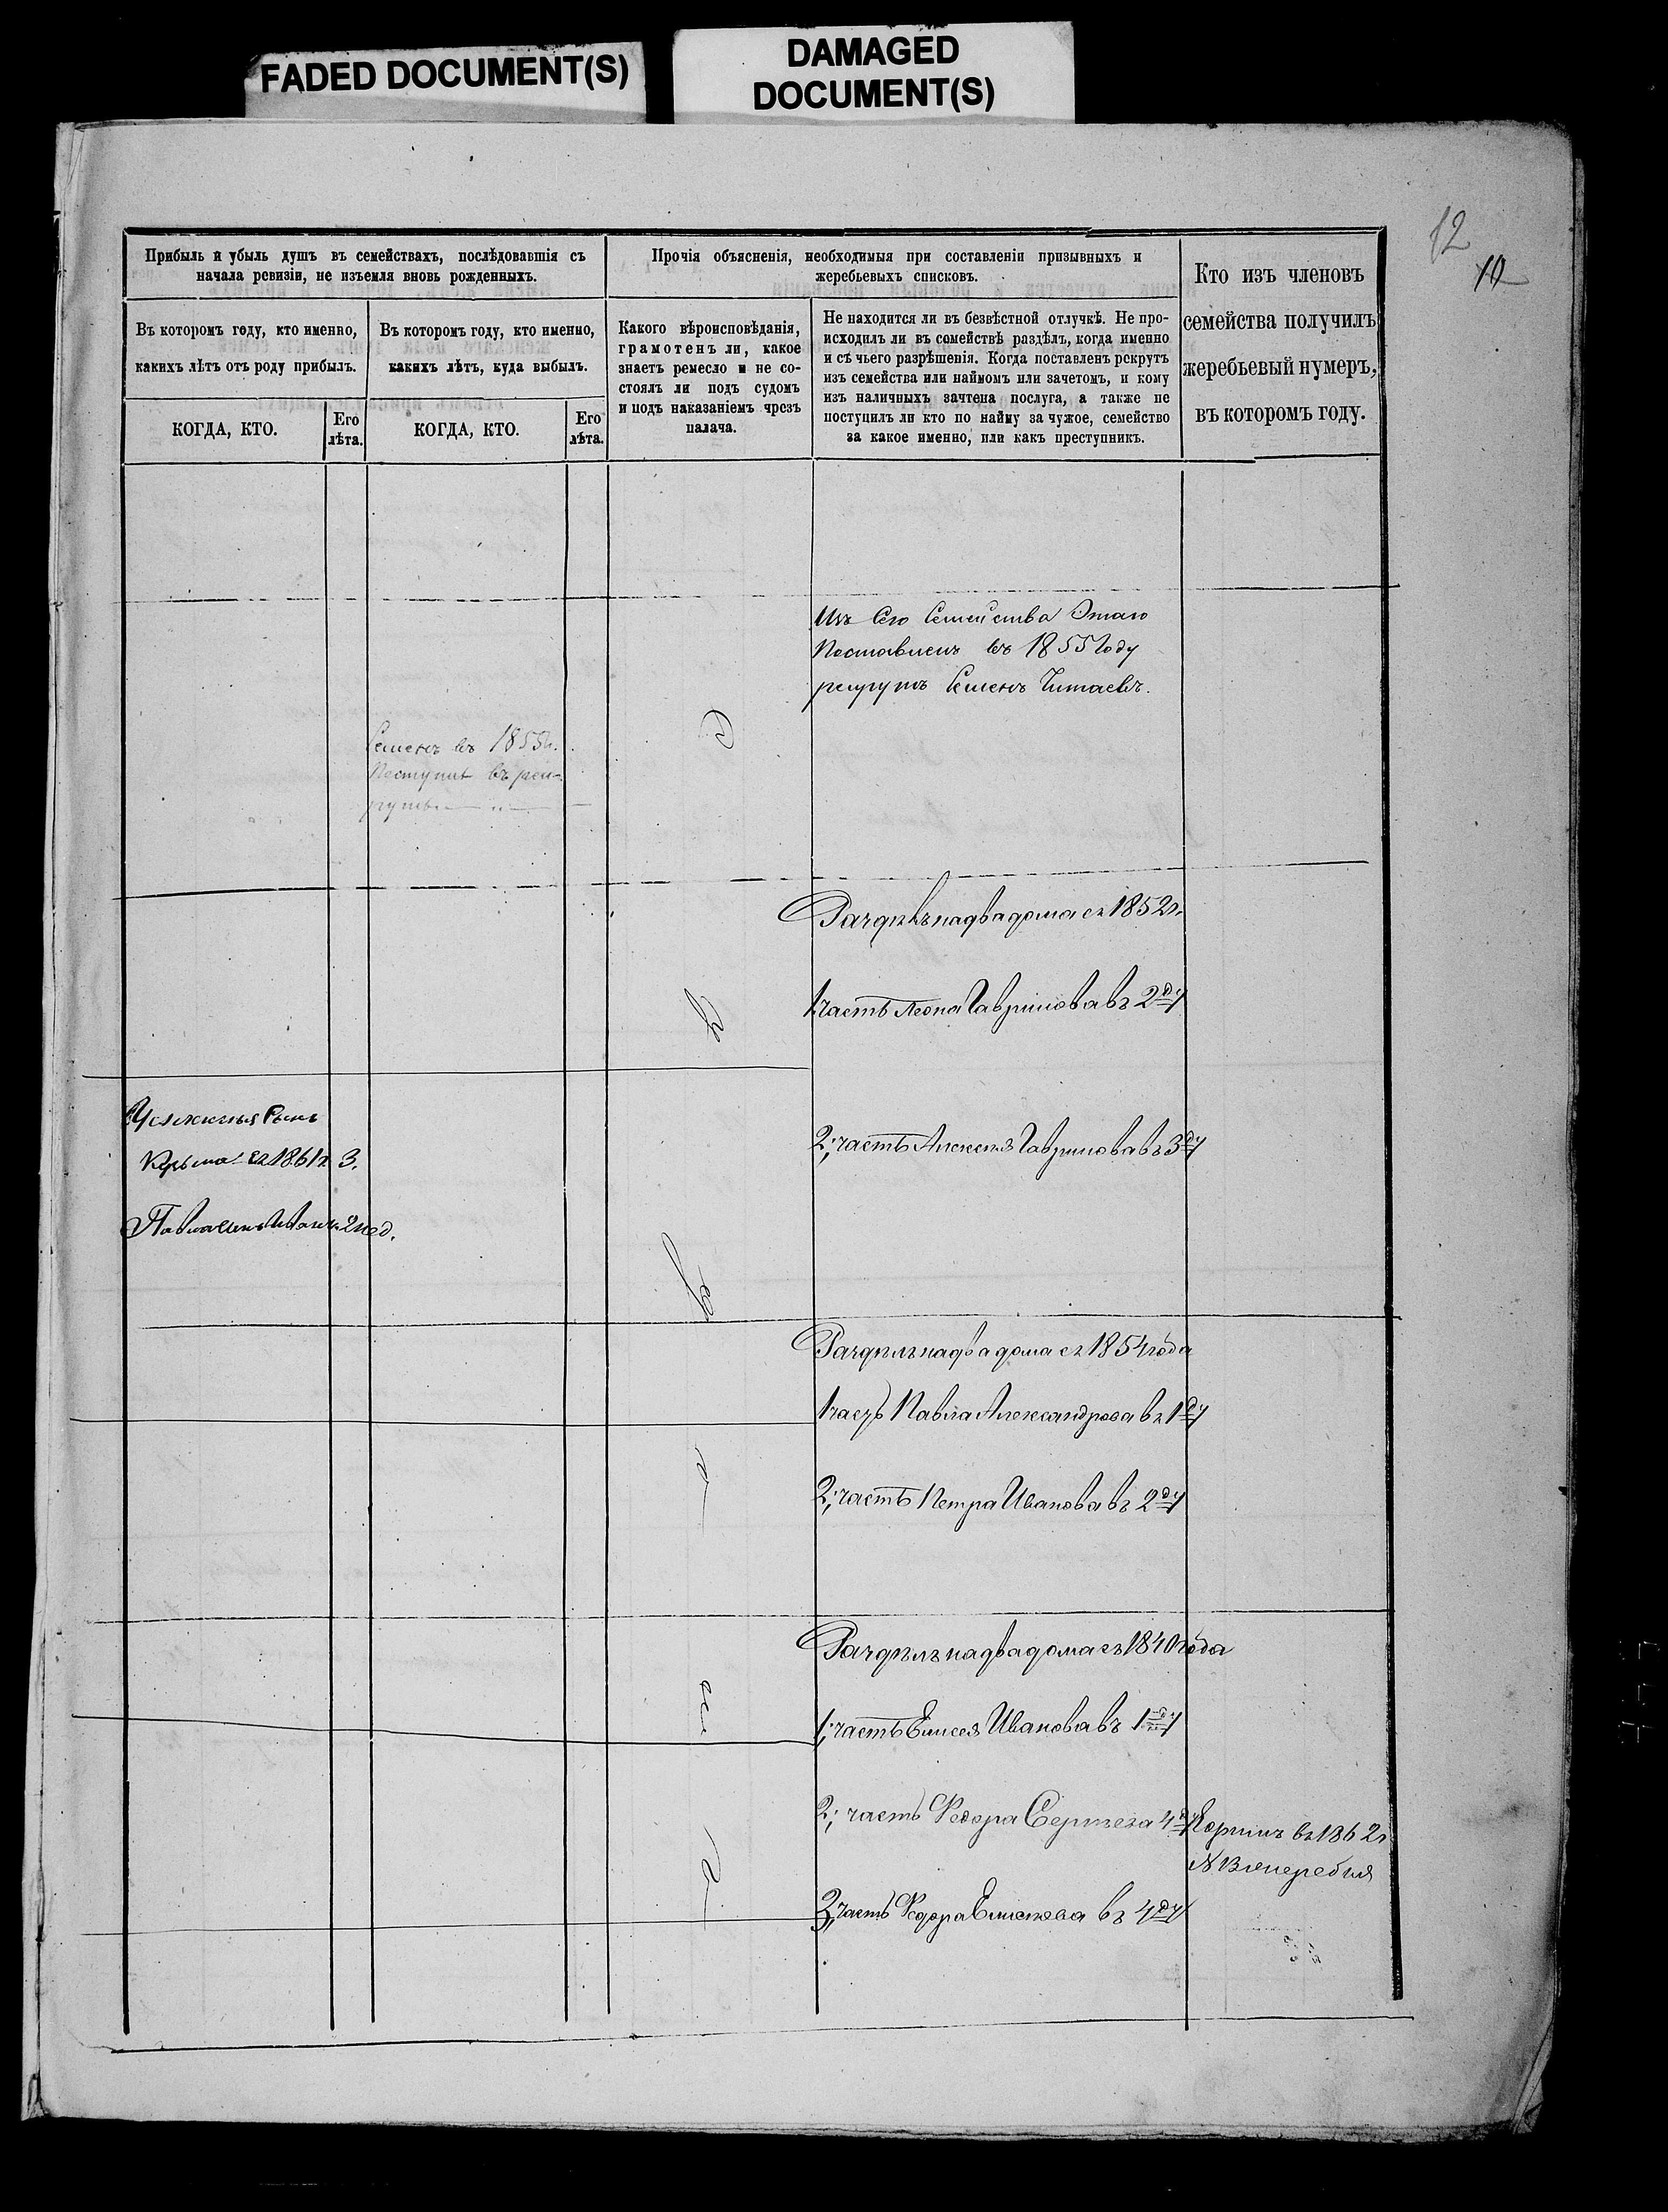 FADED DOCUMENT(S)
DAMAGED
DOCUMENT(S)
12
10
Прибыль и убыль душъ въ семействахъ, послѣдовавшія съ
начала ревизіи, не изъемля вновь рожденныхъ.
Прочія объясненія, необходимыя при составленіи призывныхъ и
жеребьевыхъ списковъ.
Кто изъ членовъ
семейства получилъ
жеребьевый нумеръ,
въ которомъ году.
Въ которомъ году, кто именно,
какихъ лѣтъ отъ роду прибылъ.
Въ которомъ году, кто именно,
какихъ лѣтъ, куда выбылъ.
Какого вѣроисповѣданія,
грамотенъ ли, какое
знаетъ ремесло и не со-
стоялъ ли подъ судомъ
и подъ наказаніемъ чрезъ
палача.
Не находится ли въ безвѣстной отлучкѣ. Не про-
исходилъ ли въ семействѣ раздѣлъ, когда именно
и съ чьего разрѣшенія. Когда поставленъ рекрутъ
изъ семейства или наймомъ или зачетомъ, и кому
изъ наличныхъ зачтена послуга, а также не
поступилъ ли кто по найму за чужое, семейство
за какое именно, или какъ преступникъ.
КОГДА, КТО.
Его
лѣта.
КОГДА, КТО.
Его
лѣта.
Изъ Сего Семейства Этаго
Поставленъ въ 1855 Году
рекрутъ Семенъ Читаевъ.
Семенъ въ 1855 г.
Поступил въ рек-
руты
Раздѣлъ на два дома съ 1852 г.
1 часть Леона Гаврилова въ 2ду
сынъ
съ 1861 г 3.
Павла сынъ Иванъ 2 нед.
2; часть Алексея Гаврилова въ 3ду
Раздѣлъ на два дома съ 1854 года
1 часть Павла Александрова въ 1ду
2; часть Петра Иванова въ 2ду
Раздѣлъ на два дома съ 1840 года
1; часть Елисея Иванова въ 1ду
2; часть Федора Сергеева 4ду
въ 1862 г
3; часть Федора Елисеева въ 4ду